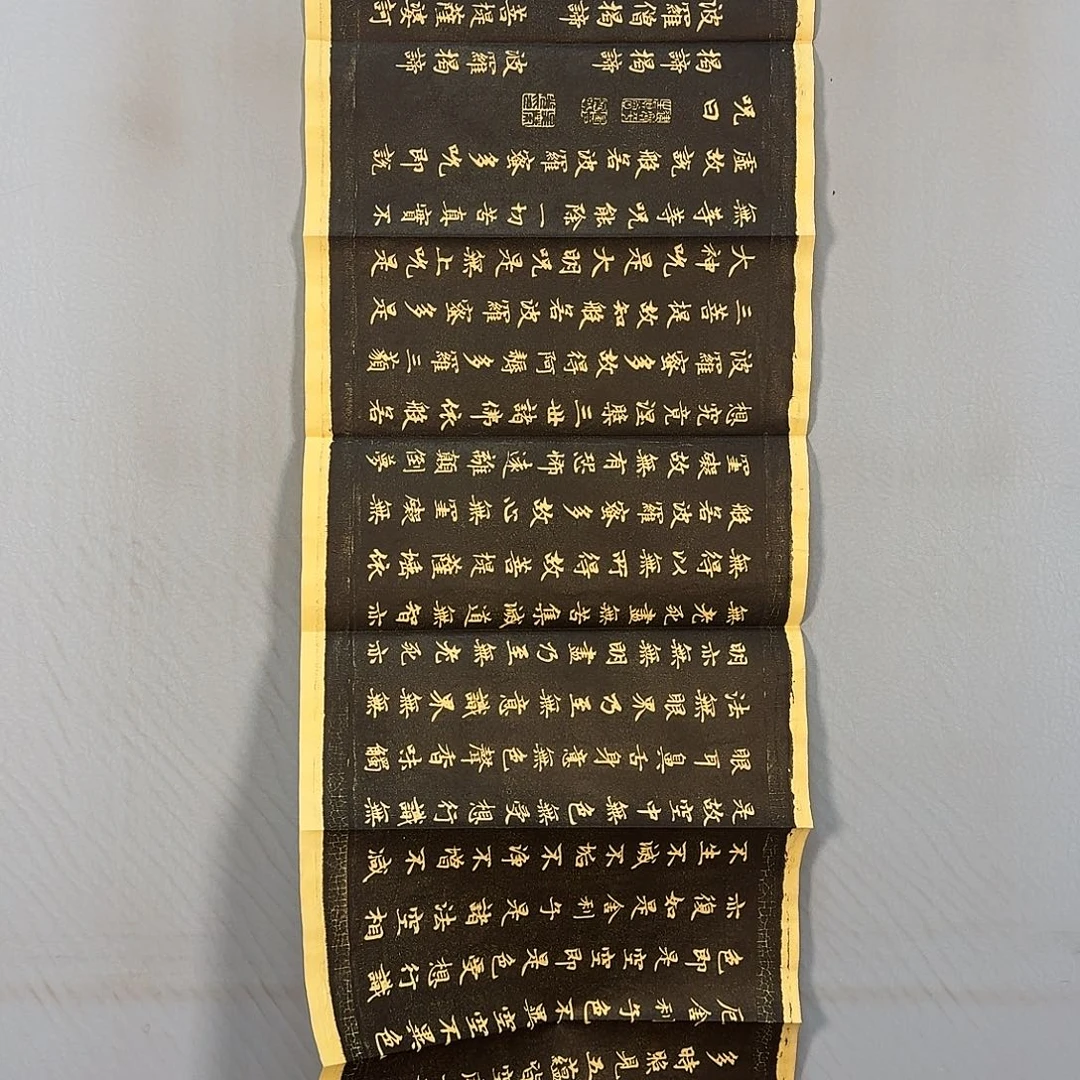 多時照見五蘊皆空度
厄舍利子色不異空空不異色
色即是空空即是色受想行識
亦復如是舍利子是諸法空相
不生不滅不垢不淨不增不減
是故空中無色無受想行識無
眼耳鼻舌身意無色聲香味觸
法無眼界乃至無意識界無無
明亦無無明盡乃至無老死亦
無老死盡無苦集滅道無智亦
無得以無所得故菩提薩埵依
般若波羅蜜多故心無罣礙無
罣礙故無有恐怖遠離顛倒夢
想究竟涅槃三世諸佛依般若
波羅蜜多故得阿耨多羅三藐
三菩提故知般若波羅蜜多是
大神咒是大明咒是無上咒是
無等等咒能除一切苦真實不
虛故說般若波羅蜜多咒即說
咒曰
揭諦揭諦 波羅揭諦
波羅僧揭諦 菩提薩婆訶